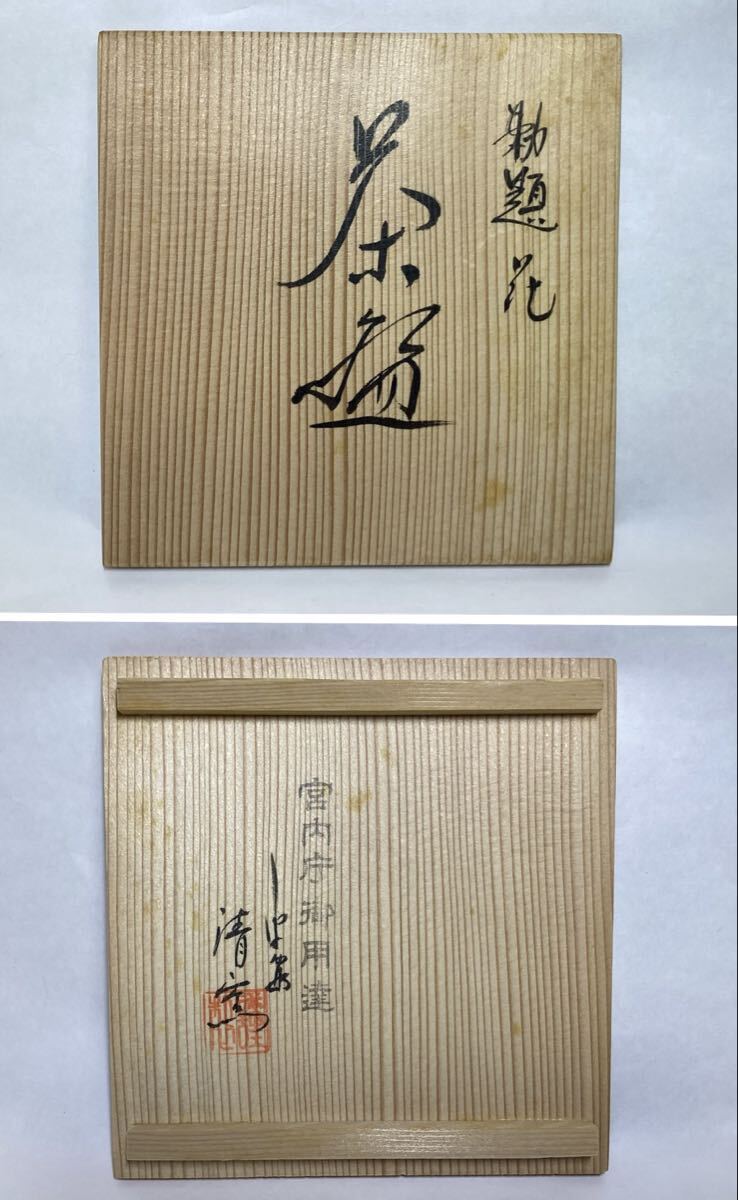 勅題 花
茶碗
宮内庁御用達
平安
清窯